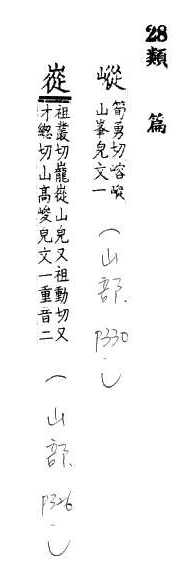 28類 篇
嵷 筍勇切嵱嵷
山峯皃文一
（山部 P330）
嵸 祖叢切巃嵸山皃又祖動切又
才總切山高峻皃文一重音二
（山部 P326）